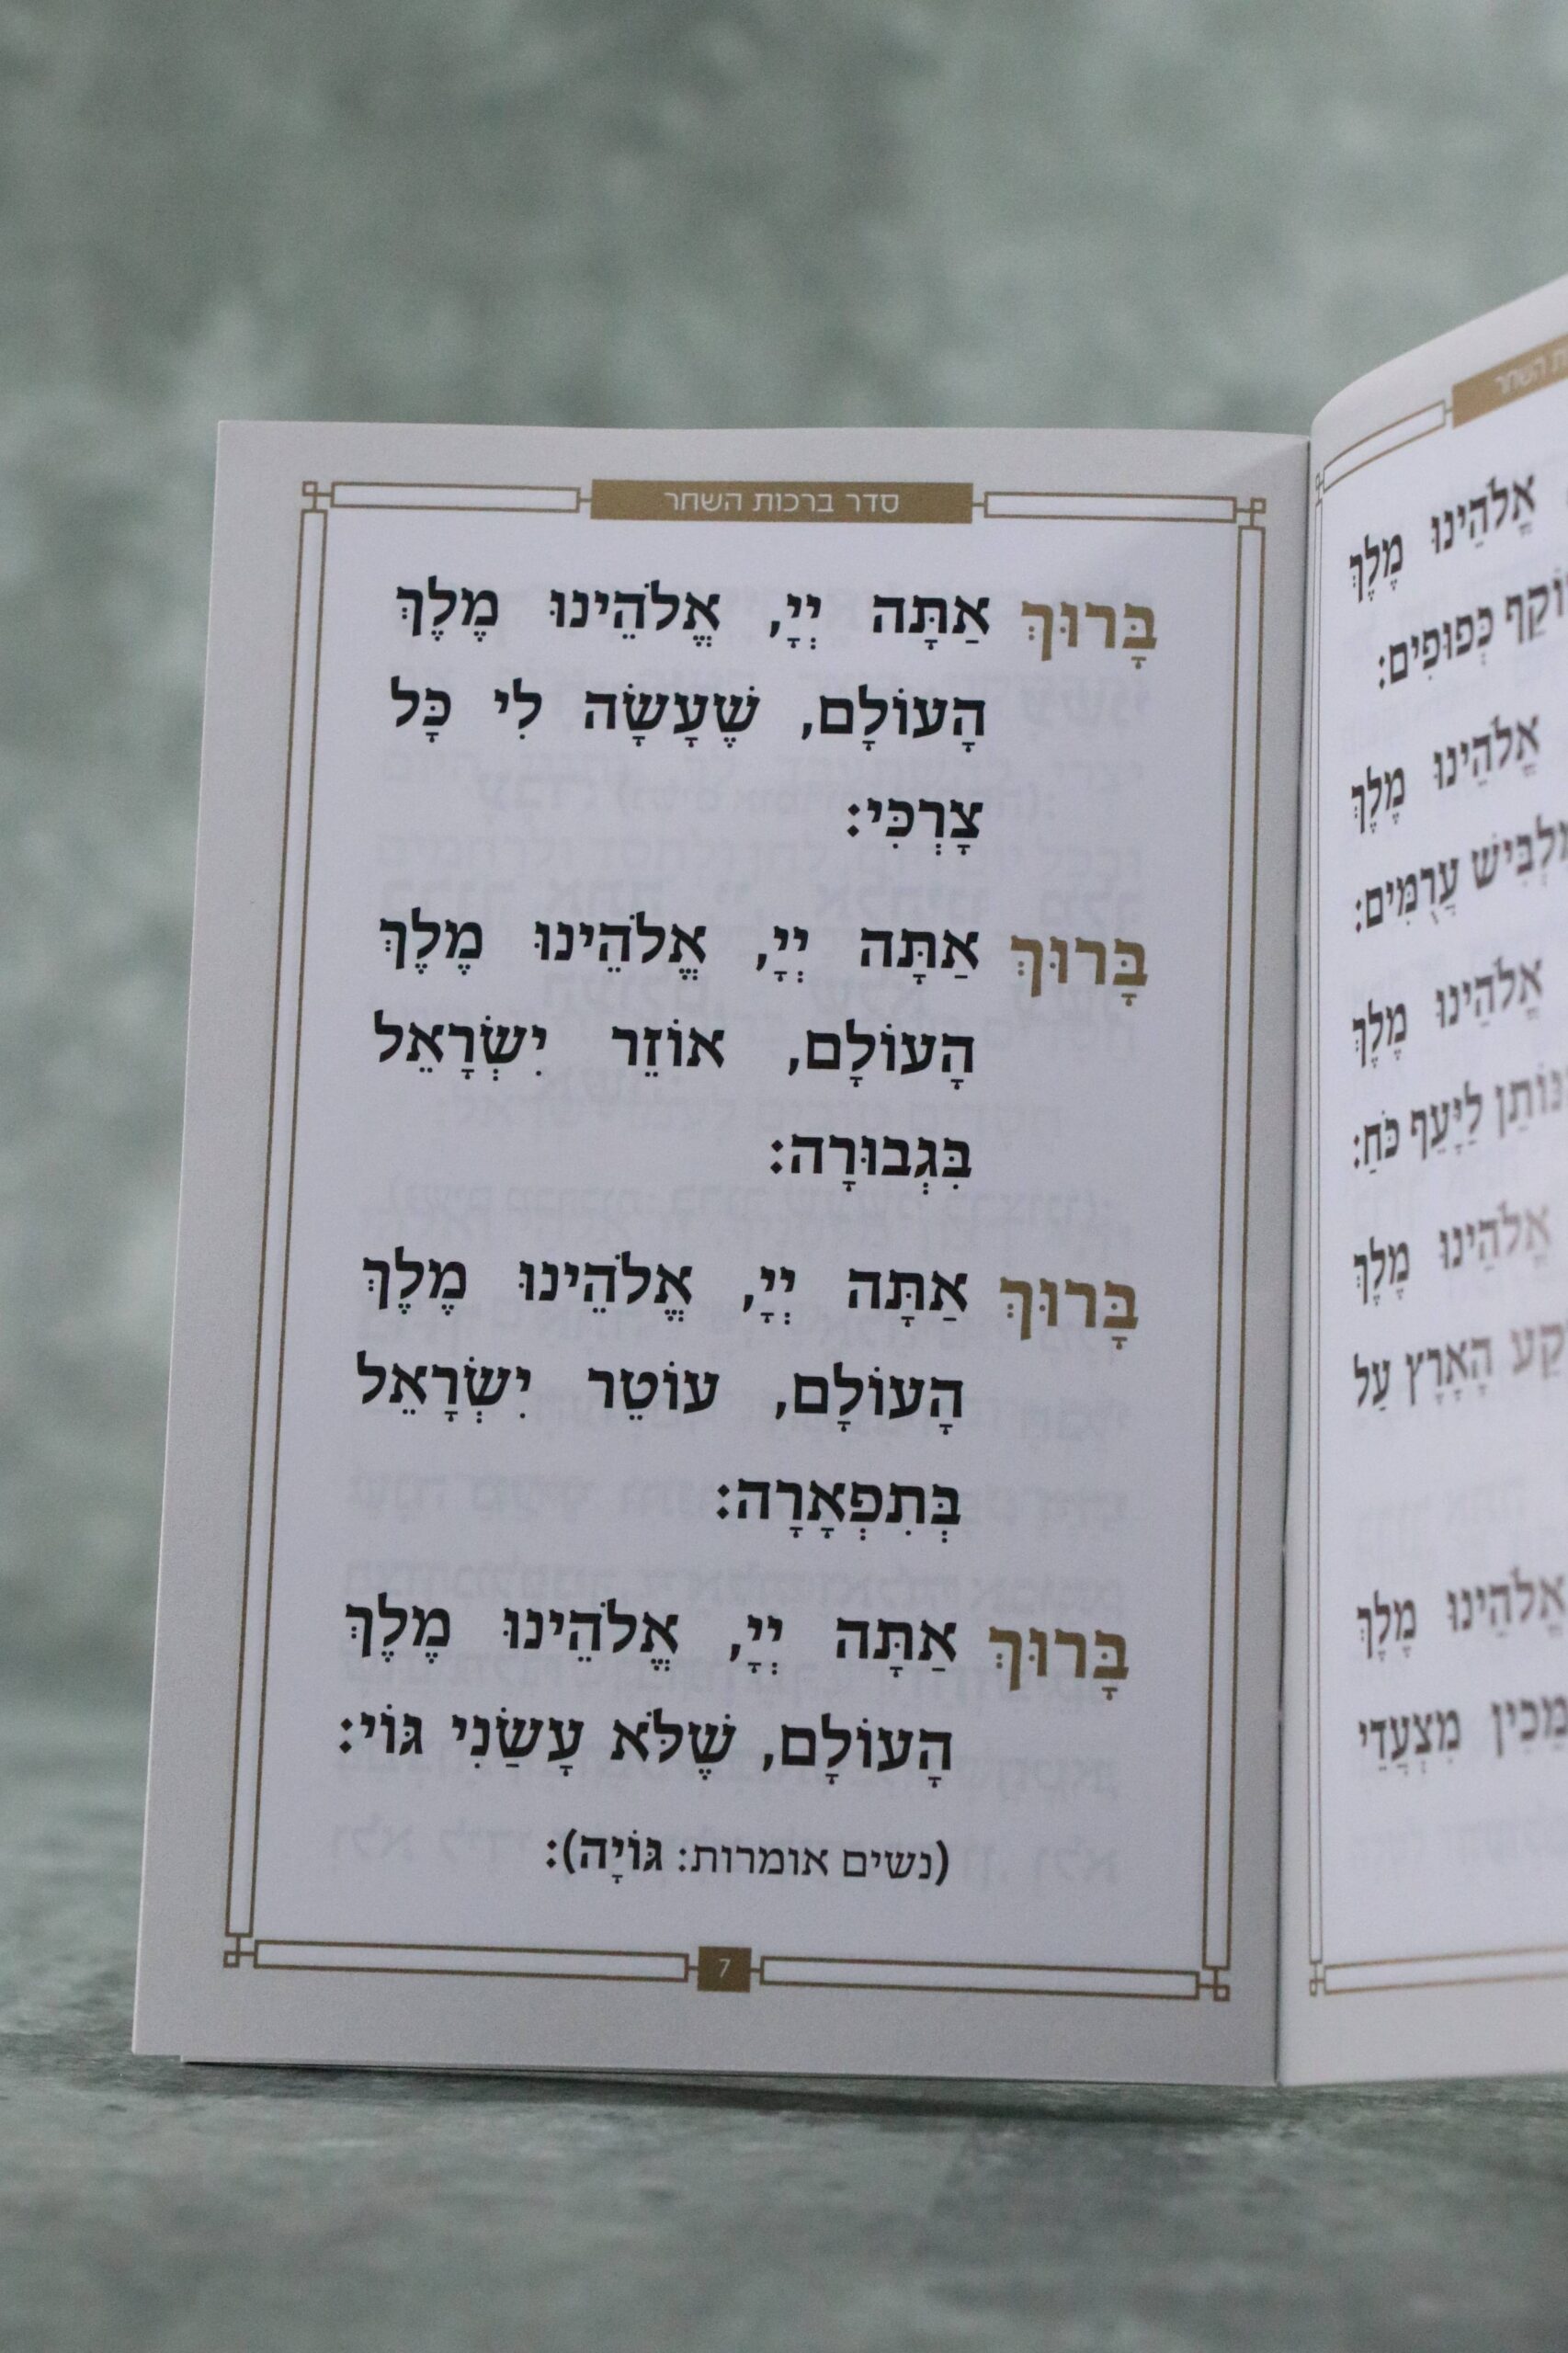 סדר ברכות השחר
בָּרוּךְ אַתָּה יְיָ, אֱלֹהֵינוּ מֶלֶךְ
הָעוֹלָם, שֶׁעָשָׂה לִי כָּל
צָרְכִּי:
בָּרוּךְ אַתָּה יְיָ, אֱלֹהֵינוּ מֶלֶךְ
הָעוֹלָם, אוֹזֵר יִשְׂרָאֵל
בִּגְבוּרָה:
בָּרוּךְ אַתָּה יְיָ, אֱלֹהֵינוּ מֶלֶךְ
הָעוֹלָם, עוֹטֵר יִשְׂרָאֵל
בְּתִפְאָרָה:
בָּרוּךְ אַתָּה יְיָ, אֱלֹהֵינוּ מֶלֶךְ
הָעוֹלָם, שֶׁלֹּא עָשַׂנִי גּוֹי:
(נשים אומרות: גּוֹיָה):
7
השחר
אֱלֹהֵינוּ מֶלֶךְ
כְּפוּפִים:
אֱלֹהֵינוּ מֶלֶךְ
עֲרֻמִּים:
אֱלֹהֵינוּ מֶלֶךְ
לַיָּעֵף כֹּחַ:
אֱלֹהֵינוּ מֶלֶךְ
הָאָרֶץ עַל
אֱלֹהֵינוּ מֶלֶךְ
מִצְעֲדֵי